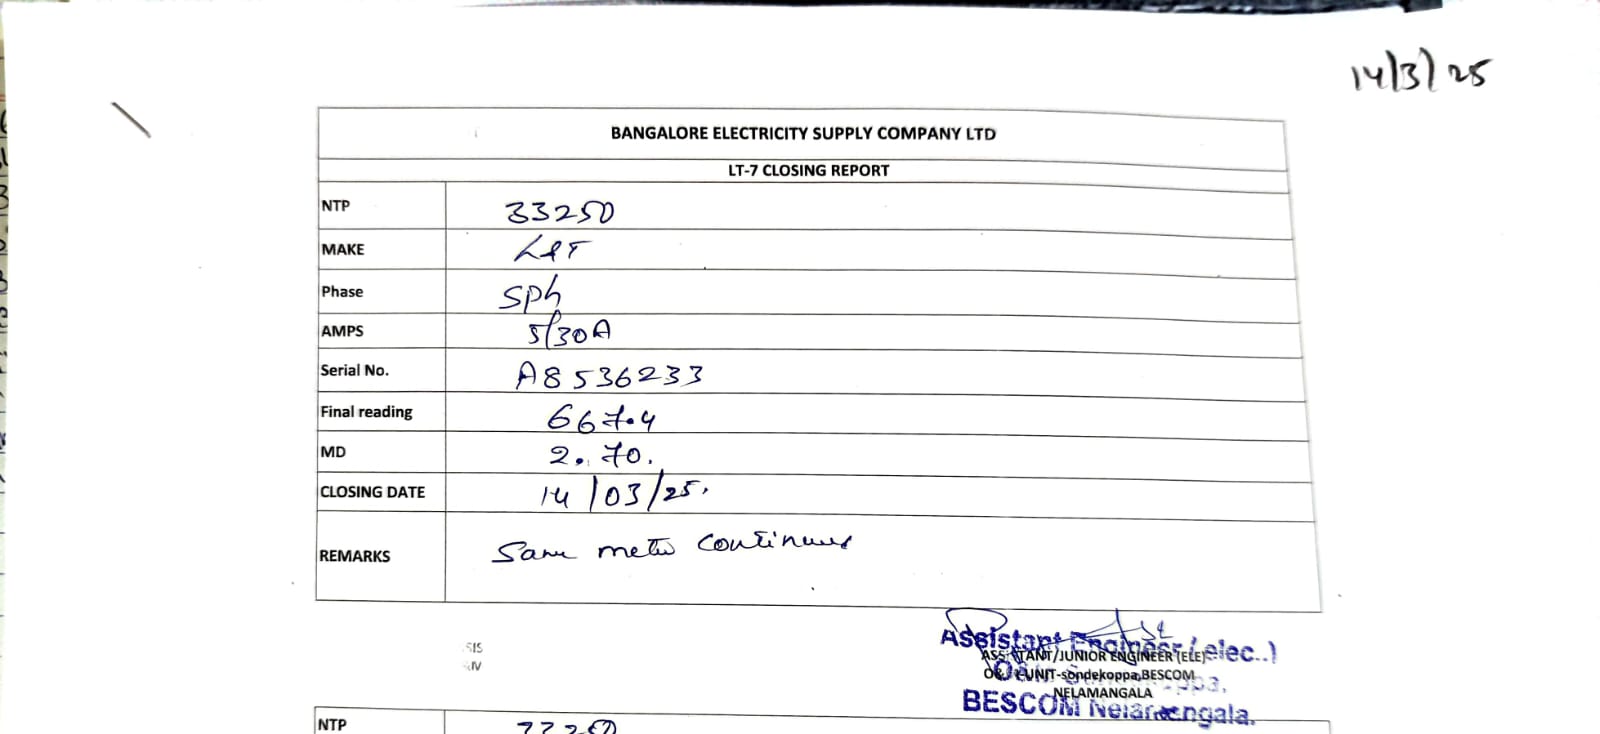 14/3/25
BANGALORE ELECTRICITY SUPPLY COMPANY LTD
LT-7 CLOSING REPORT
NTP 33250
MAKE L&T
Phase Sph
AMPS 5/30A
Serial No. A8536233
Final reading 667.4
MD 2.70.
CLOSING DATE 14/03/25.
REMARKS Same meter continues
SIS
IV
Assistant Engineer (elec..)
ASSISTANT/JUNIOR ENGINEER (ELE)
UNIT-sondekoppa,BESCOM
NELAMANGALA
BESCOM Nelamangala.
NTP 33250